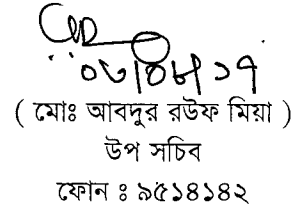 ( মোঃ আবদুর রউফ মিয়া )
উপ সচিব
ফোন ঃ ৯৫১৪১৪২